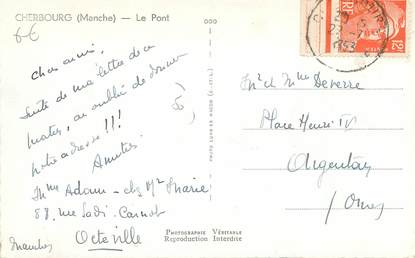 CHERBOURG (Manche) — Le Pont
6€
Cher ami,
Suite de ma lettre de ce
matin, ai oublié de donner
notre adresse !!!
Amitiés
Mme Adam - chez Mr Marie
88, rue Sadi-Carnot
Octeville
Manche
PHOTOGRAPHIE VÉRITABLE
Reproduction Interdite
Mr & Mme Deverre
Place Henri IV
Argentan
Orne
12F